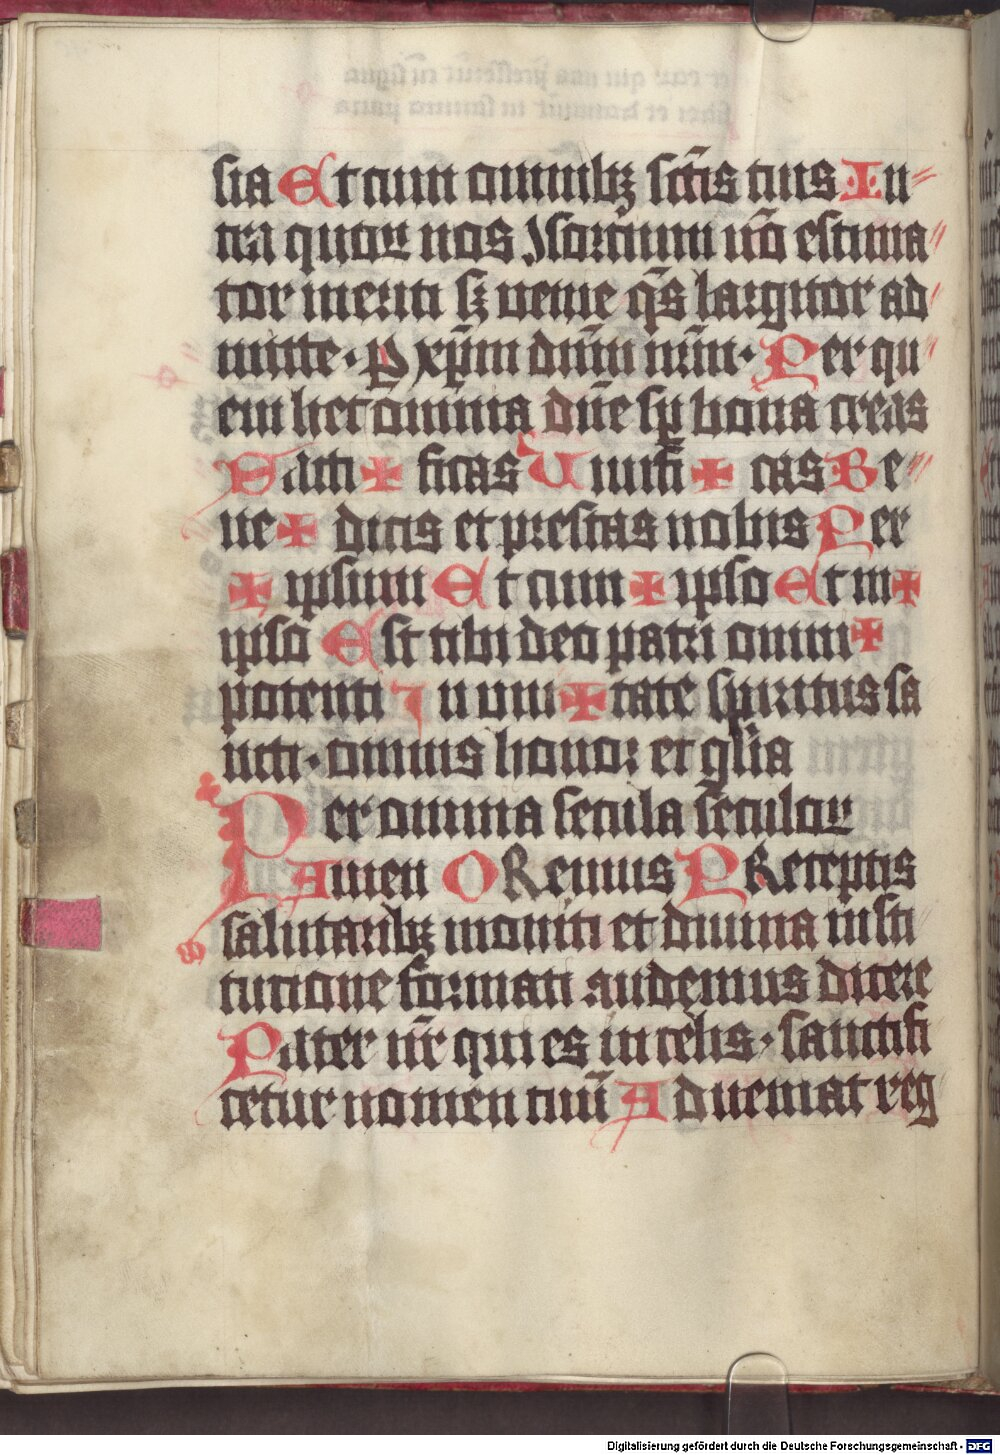 sia Et cum omnibꝫ sc̄tis tuis In
tra quoꝝ nos ꝯsorcium nō estima
tor meriti sꝫ venie q̄s largitor ad
mitte · ꝑ xp̄m dn̄m nr̄m · Per qu
em hec omnia dn̄e sꝑ bona creas
Sancti ✠ ficas Viuifi ✠ cas Be
ne ✠ dicis et prestas nobis Per
✠ ipsum Et cum ✠ ipso Et in ✠
ipso Est tibi deo patri omni ✠
potenti In vni ✠ tate spiritus sa
ncti · omnis honor et gl̄ia
Per omnia secula seculoꝝ
Amen ORemus PReceptis
salutaribꝫ moniti et diuina insti
tutione formati audemus dicere
Pater nr̄ qui es in celis · sanctifi
cetur nomen tuū Adueniat reg
Digitalisierung gefördert durch die Deutsche Forschungsgemeinschaft - DFG